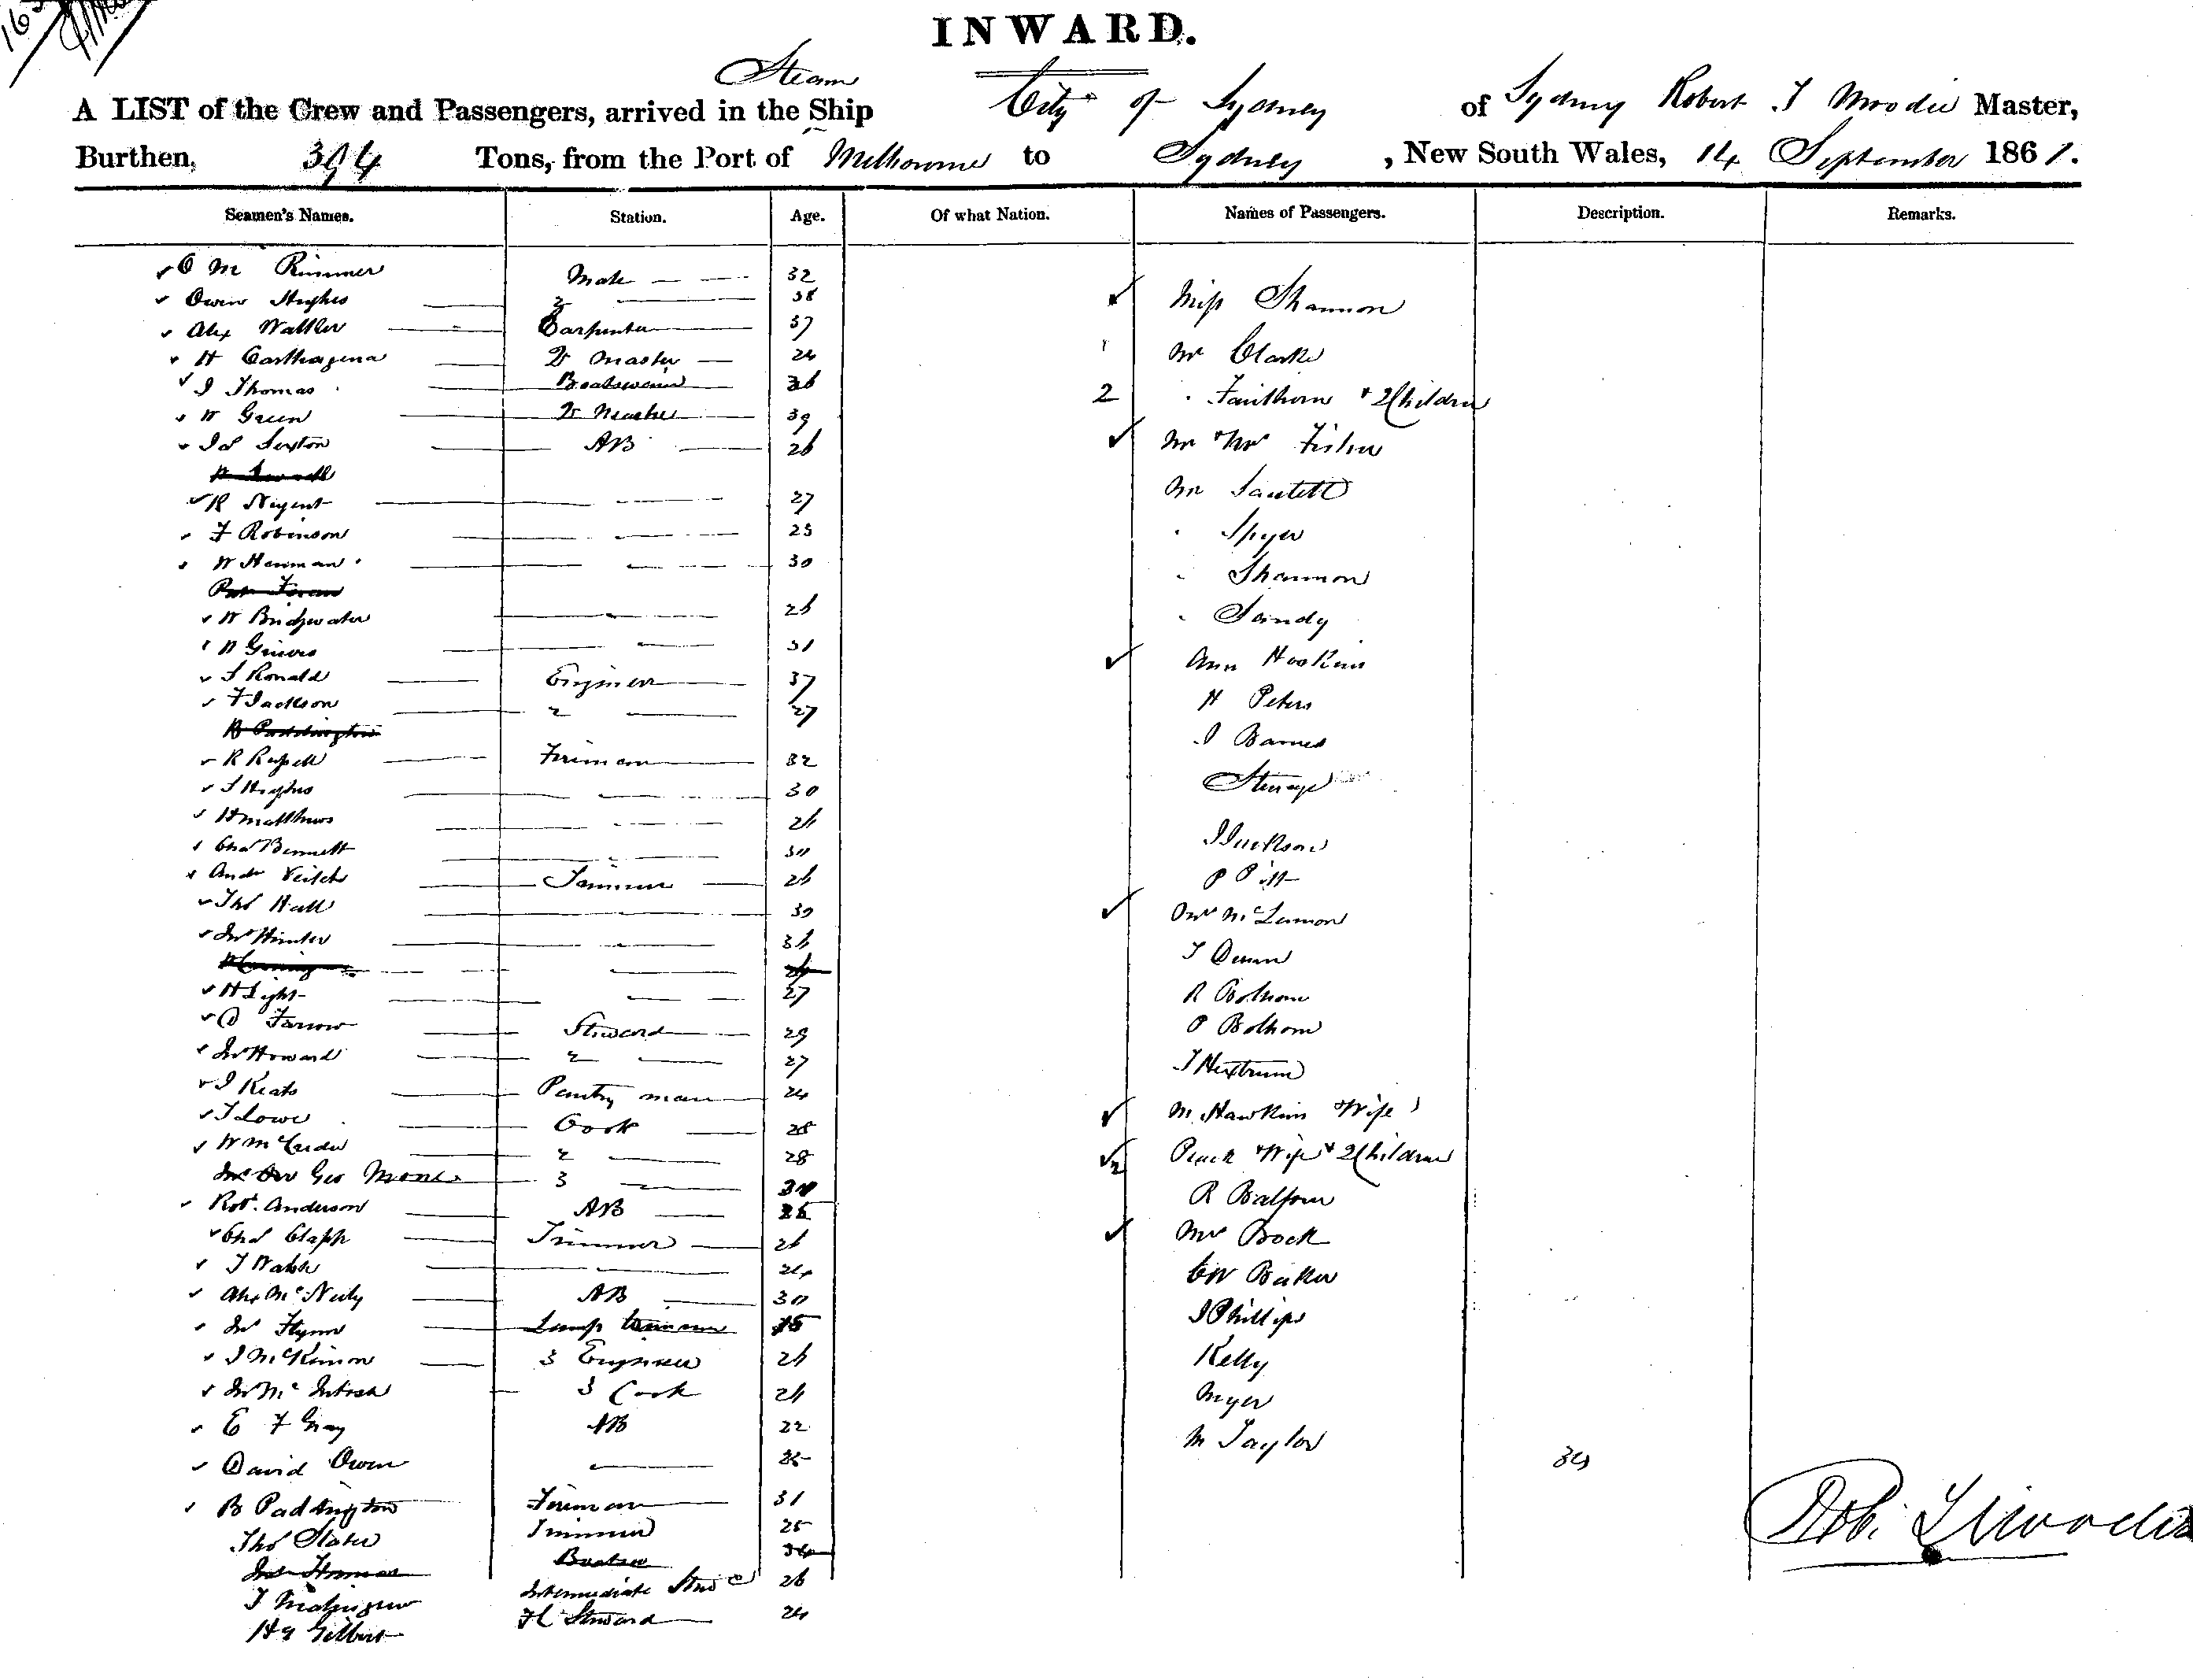 INWARD.
Steam
A LIST of the Crew and Passengers, arrived in the Ship City of Sydney of Sydney Robert T Moodie Master,
Burthen, 394 Tons, from the Port of Melbourne to Sydney, New South Wales, 14 September 1861.
Seamen's Names. Station. Age. Of what Nation. Names of Passengers. Description. Remarks.
O M Rimmer Mate 32
Owen Hughes 2 38
Alex Walker Carpenter 37
H Carthagena Qr Master 24
J Thomas Boatswain 36
W Green Qr Master 39
Jas Sexton AB 26
R Nugent 27
F Robinson 25
W Henman 30
W Bridgwater 26
31
J Ronald Engineer 37
F Jackson 2 27
B Paddington
R Russell Fireman 32
J Hughes 30
H Matthews 26
Chas Bennett 30
Andw Veitch Trimmer 26
Thos Hall 30
Jno Hunter 36
H Light 27
D Farrow Steward 29
Jno Howard 2 27
J Keats Pantry man 24
T Lowe Cook 28
W McCruder 2 28
Geo Moore 3 30
Robt. Anderson AB
Chas Clapp Trimmer 26
T Walsh 24
Alex McNeily AB 30
Jno Flynn Lamp trimmer
J McKinnon 3 Engineer 26
Jno McIntosh 3 Cook 26
E F Gray AB 22
David Owen 25
B Paddington Fireman 31
Thos Slater Trimmer 25
Intermediate Stwd 26
Hy Gilbert F C Steward 24
Miss Shannon
Mr Clarke
2 " Faithorn & 2 Children
Mr & Mrs Fisher
Mr
" Spyer
" Shannon
" Sandy
Ann Hoskins
H Peters
J Barnes
Steerage
J Jackson
P Pitt
Mrs McLennon
T Dunn
R Bothom
P Bothom
M Hawkins & Wife
2 Peack & Wife & 2 Children
R Balfour
Mrs Bock
CW Baker
J Phillips
Kelly
Myer
M Taylor
34
Rob. T Moodie